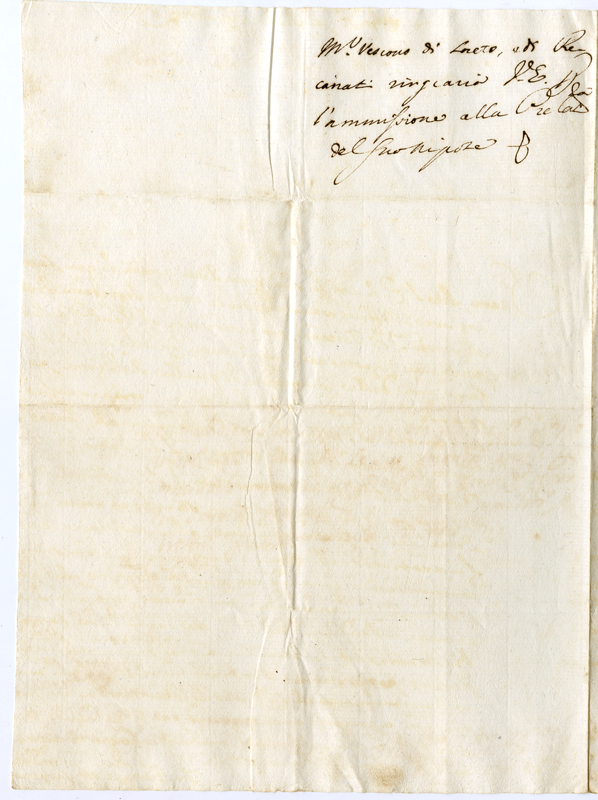 M.r Vescovo di Loreto, e di Re
canati ringrazia V.E. p
l'ammissione alla Prelat
del suo Nipote